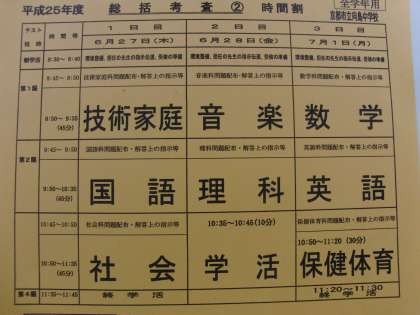 平成25年度 総括考査② 時間割
全学年用
京都市立向島中学校
テスト 時間帯 1日目 2日目 3日目
6月27日(木) 6月28日(金) 7月1日(月)
朝学活 8:30～8:40
第1限 8:45～8:50 技術家庭科問題配布・解答上の指示等 音楽科問題配布・解答上の指示等 数学科問題配布・解答上の指示等
8:50～9:35 (45分) 技術家庭 音楽 数学
第2限 9:45～9:50 国語科問題配布・解答上の指示等 理科問題配布・解答上の指示等 英語科問題配布・解答上の指示等
9:50～10:35 (45分) 国語 理科 英語
10:45～10:50 社会科問題配布・解答上の指示等 10:35～10:45(10分) 保健体育科問題配布・解答上の指示等
10:50～11:35 (45分) 社会 学活 10:50～11:20 (30分)
保健体育
第4限 11:35～11:45 終学活 11:20～11:30
終学活